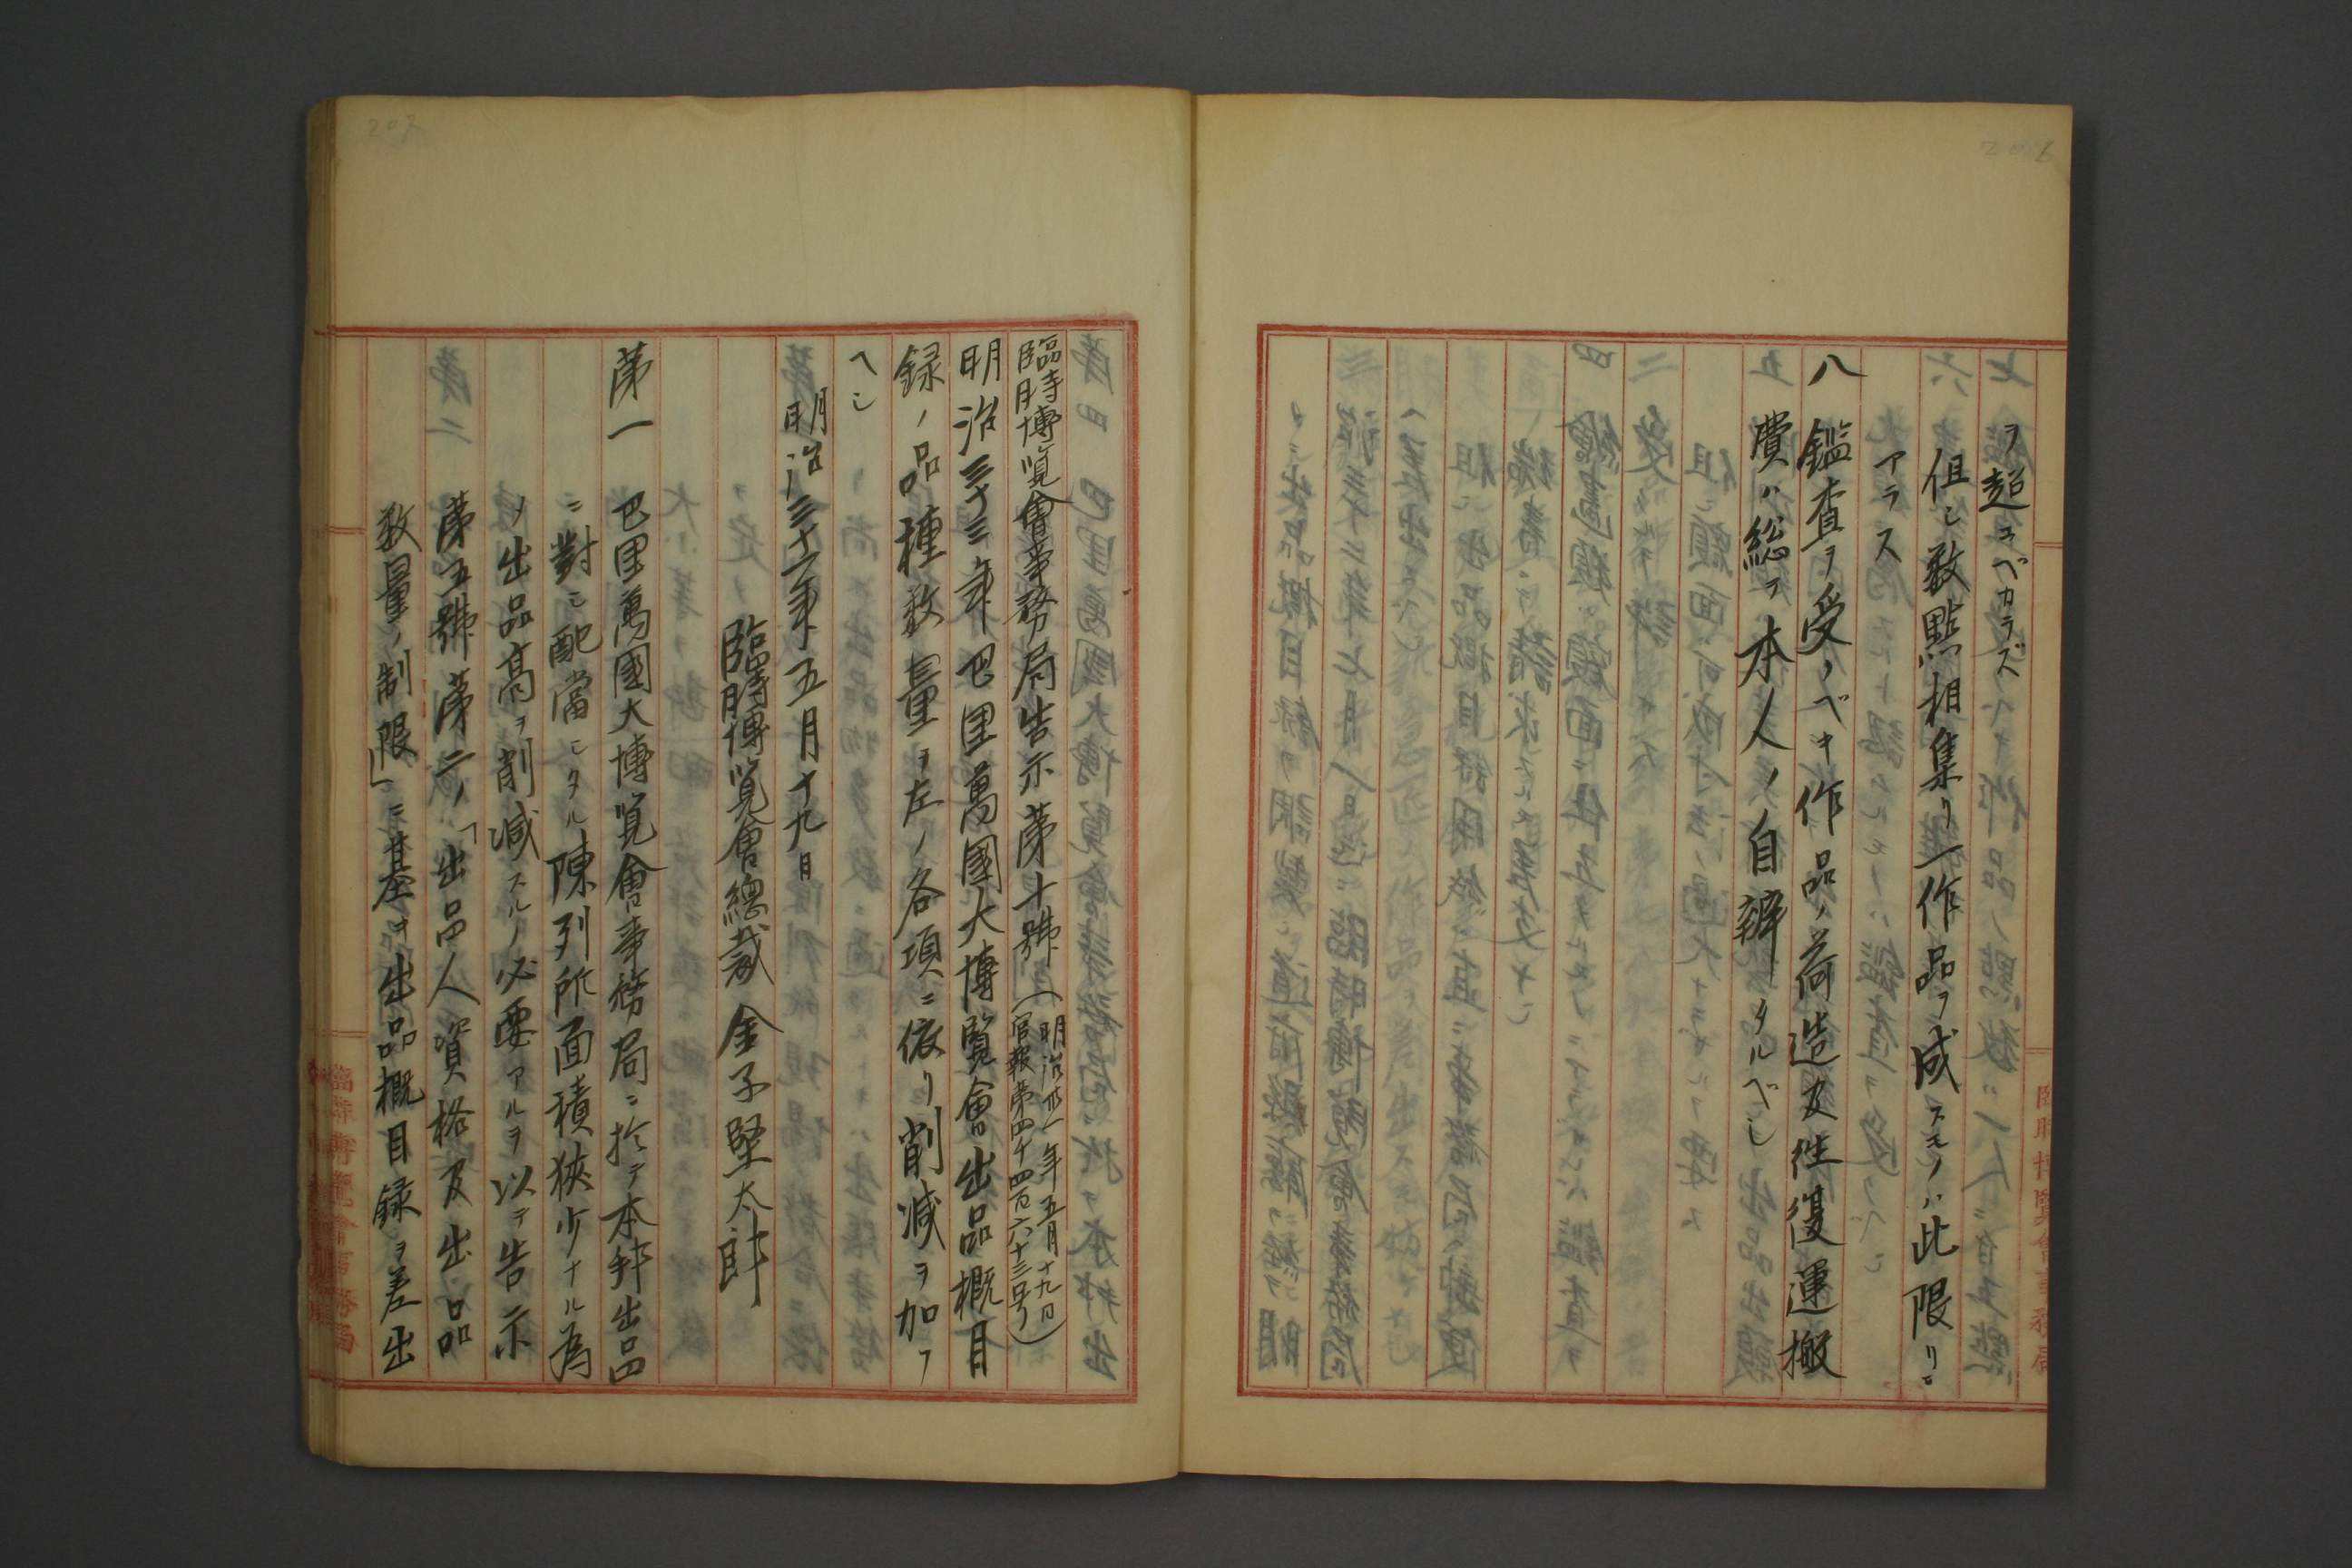 ヲ超ユベカラズ
但シ数點相集リ一作品ヲ成スモノハ此限リニ
アラス
八 鑑査ヲ受クベキ作品ノ荷造及往復運搬
費ハ総テ本人ノ自辨タルベシ
臨時博覧會事務局告示第十號(明治卅一年五月十九日
官報第四千四百六十三号)
明治三十三年巴里萬國大博覧會出品概目
録ノ品種数量ヲ左ノ各項ニ依リ削減ヲ加フ
ヘシ
明治三十一年五月十九日
臨時博覧會總裁 金子堅太郎
第一 巴里萬國大博覧會事務局ニ於テ本邦出品
ニ對シ配當シタル陳列所面積狹少ナル為
メ出品高ヲ削減スルノ必要アルヲ以テ告示
第五號第二ノ「出品人資格及出品
数量ノ制限」ニ基キ出品概目録ヲ差出
臨時博覽會事務局